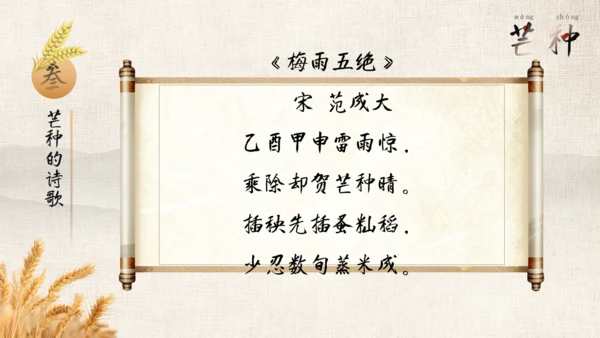 máng zhòng
芒种
叁
芒种的诗歌
《梅雨五绝》
宋 范成大
乙酉甲申雷雨惊，
乘除却贺芒种晴。
插秧先插蚤籼稻，
少忍数旬蒸米成。